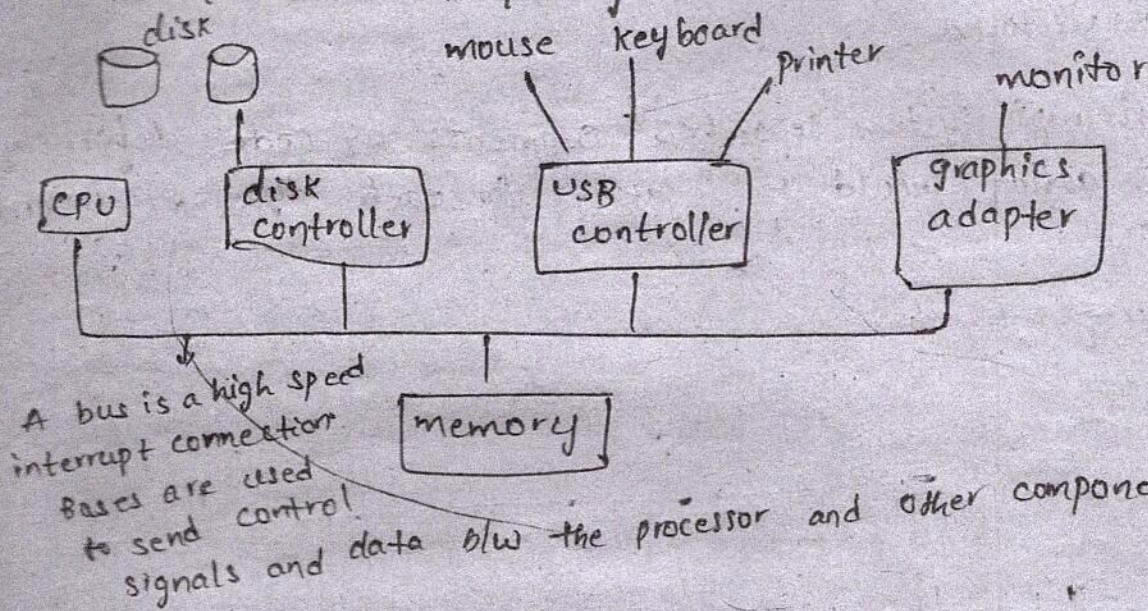 disk
mouse
keyboard
Printer
monitor
CPU
disk
controller
USB
controller
graphics
adapter
A bus is a high speed
interrupt connection
Bases are used
to send control
signals and data b/w the processor and other compone
memory